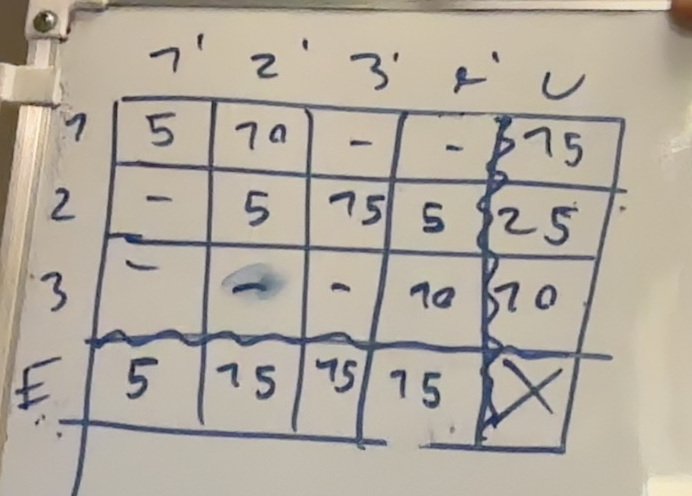 1' 2' 3' 4' U
1 5 10 - - 15
2 - 5 15 5 25
3 - - - 10 10
E 5 15 15 15 X